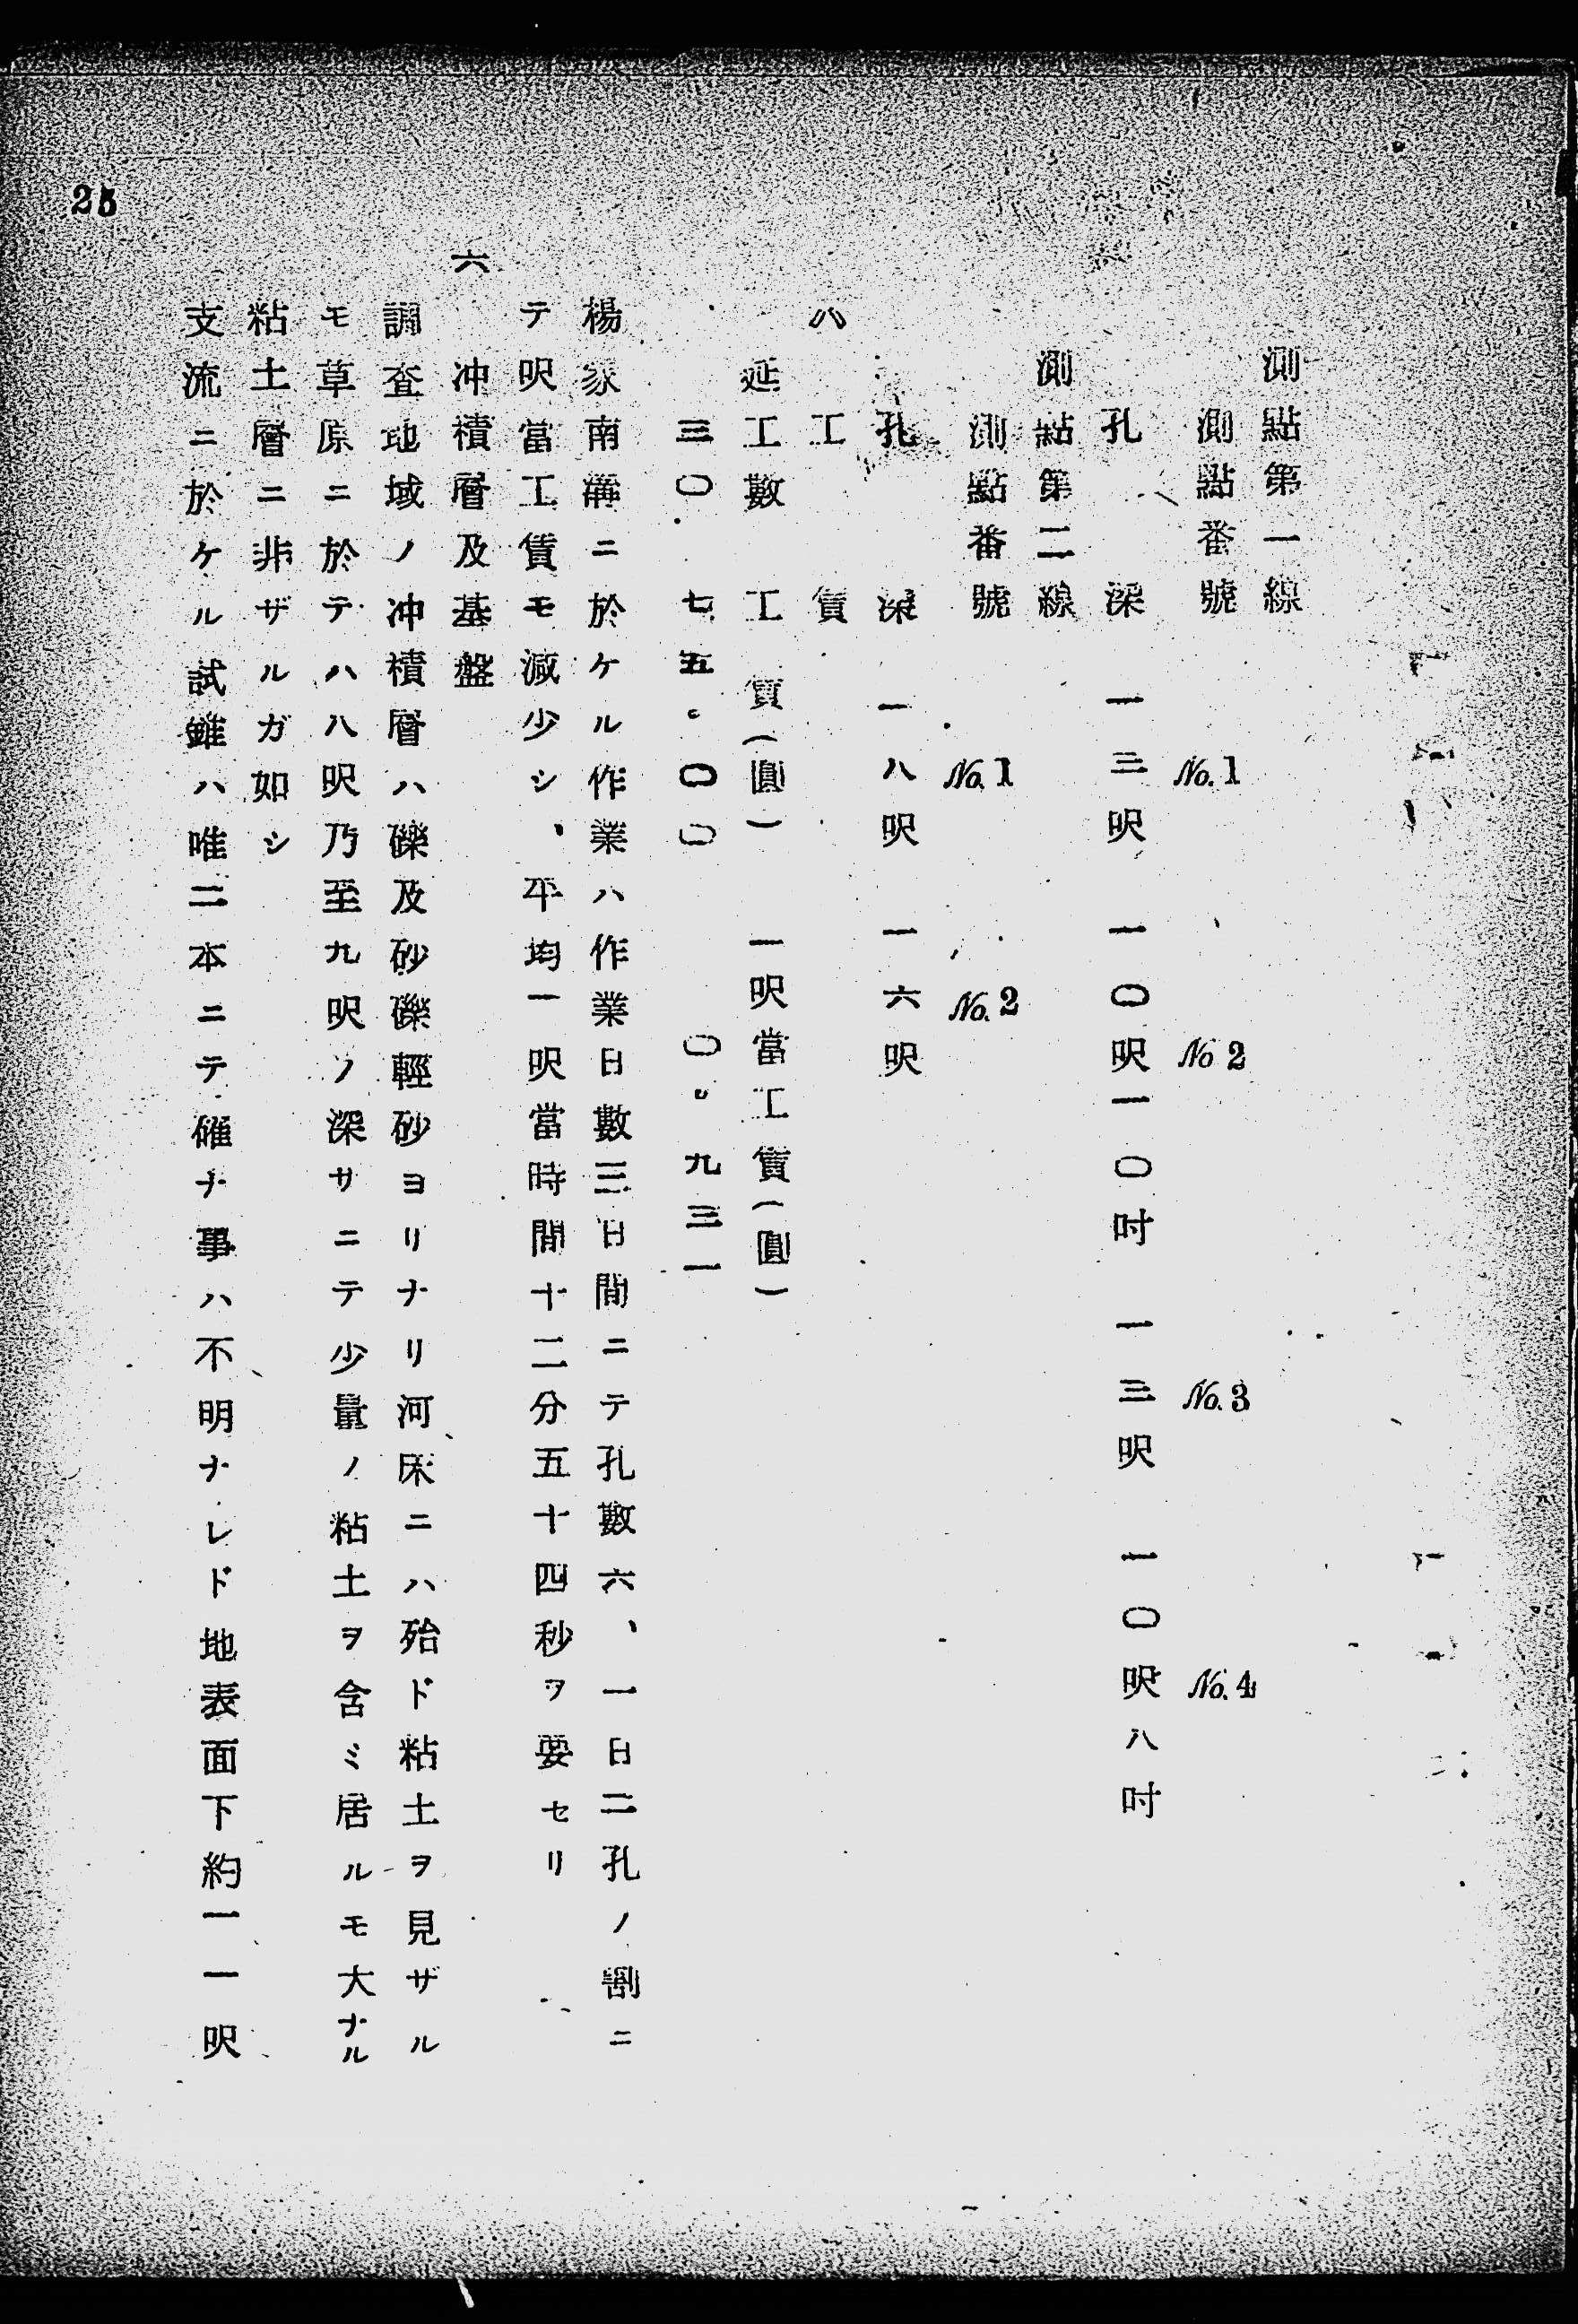 測點第一線
測點番號 No.1 No.2 No.3 No.4
孔深 一三呎 一〇呎一〇吋 一三呎 一〇呎八吋
測點第二線
測點番號 No.1 No.2
孔深 一八呎 一六呎
ハ 工賃
延工數 工賃(圓) 一呎當工賃(圓)
三〇. 七五.〇〇 〇.九三一
楊家南溝ニ於ケル作業ハ作業日數三日間ニテ孔數六、一日二孔ノ割ニ
テ呎當工賃モ減少シ、平均一呎當時間十二分五十四秒ヲ要セリ
六 冲積層及基盤
調査地域ノ冲積層ハ礫及砂礫輕砂ヨリナリ河床ニハ殆ド粘土ヲ見ザル
モ草原ニ於テハ八呎乃至九呎ノ深サニテ少量ノ粘土ヲ含ミ居ルモ大ナル
粘土層ニ非ザルガ如シ
支流ニ於ケル試錐ハ唯二本ニテ確ナ事ハ不明ナレド地表面下約一一呎